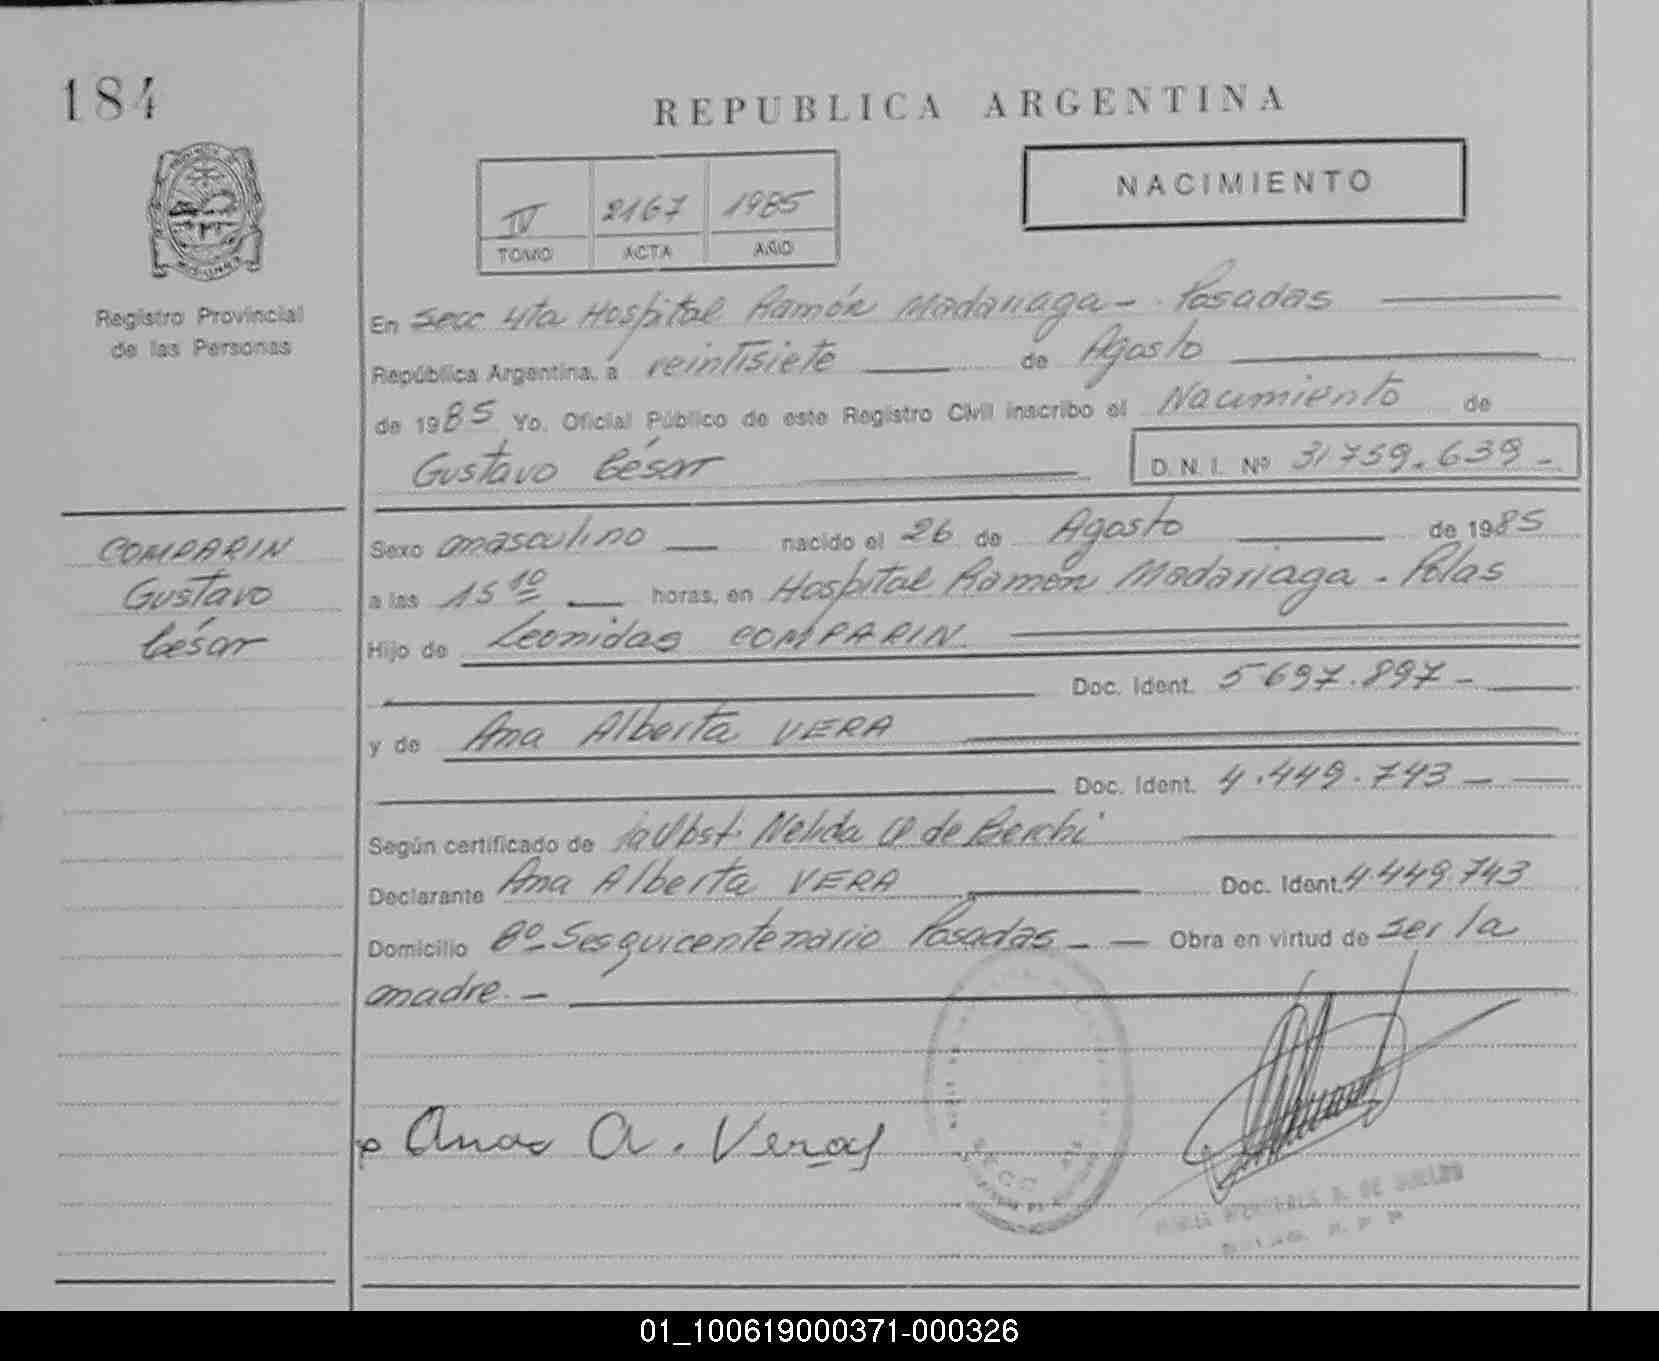 184
REPUBLICA ARGENTINA
NACIMIENTO
IV 2167 1985
TOMO ACTA AÑO
Registro Provincial
de las Personas
En Secc 4ta Hospital Ramón Madariaga - Posadas
República Argentina, a veintisiete de Agosto
de 1985 Yo, Oficial Público de este Registro Civil inscribo el Nacimiento de
Gustavo César D.N.I. Nº 31759.639-
COMPARIN
Gustavo
César
Sexo masculino nacido el 26 de Agosto de 1985
a las 15 10 horas, en Hospital Ramón Madariaga - Pdas
Hijo de Leonidas COMPARIN
Doc. Ident. 5697.897-
y de Ana Alberta VERA
Doc. Ident. 4.449.743-
Según certificado de la Obst. Nelida de
Declarante Ana Alberta VERA Doc. Ident. 4.449.743
Domicilio Bº Sesquicentenario Posadas - Obra en virtud de ser la
madre.-
Ana A. Vera
SECC
01_100619000371-000326